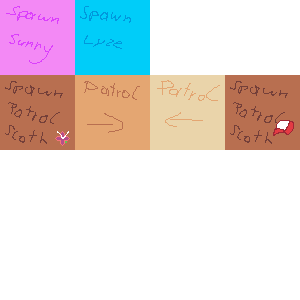 Spawn
Sunny
Spawn
Luze
Spawn
Patrol
Sloth
Patrol
Patrol
Spawn
Patrol
Sloth